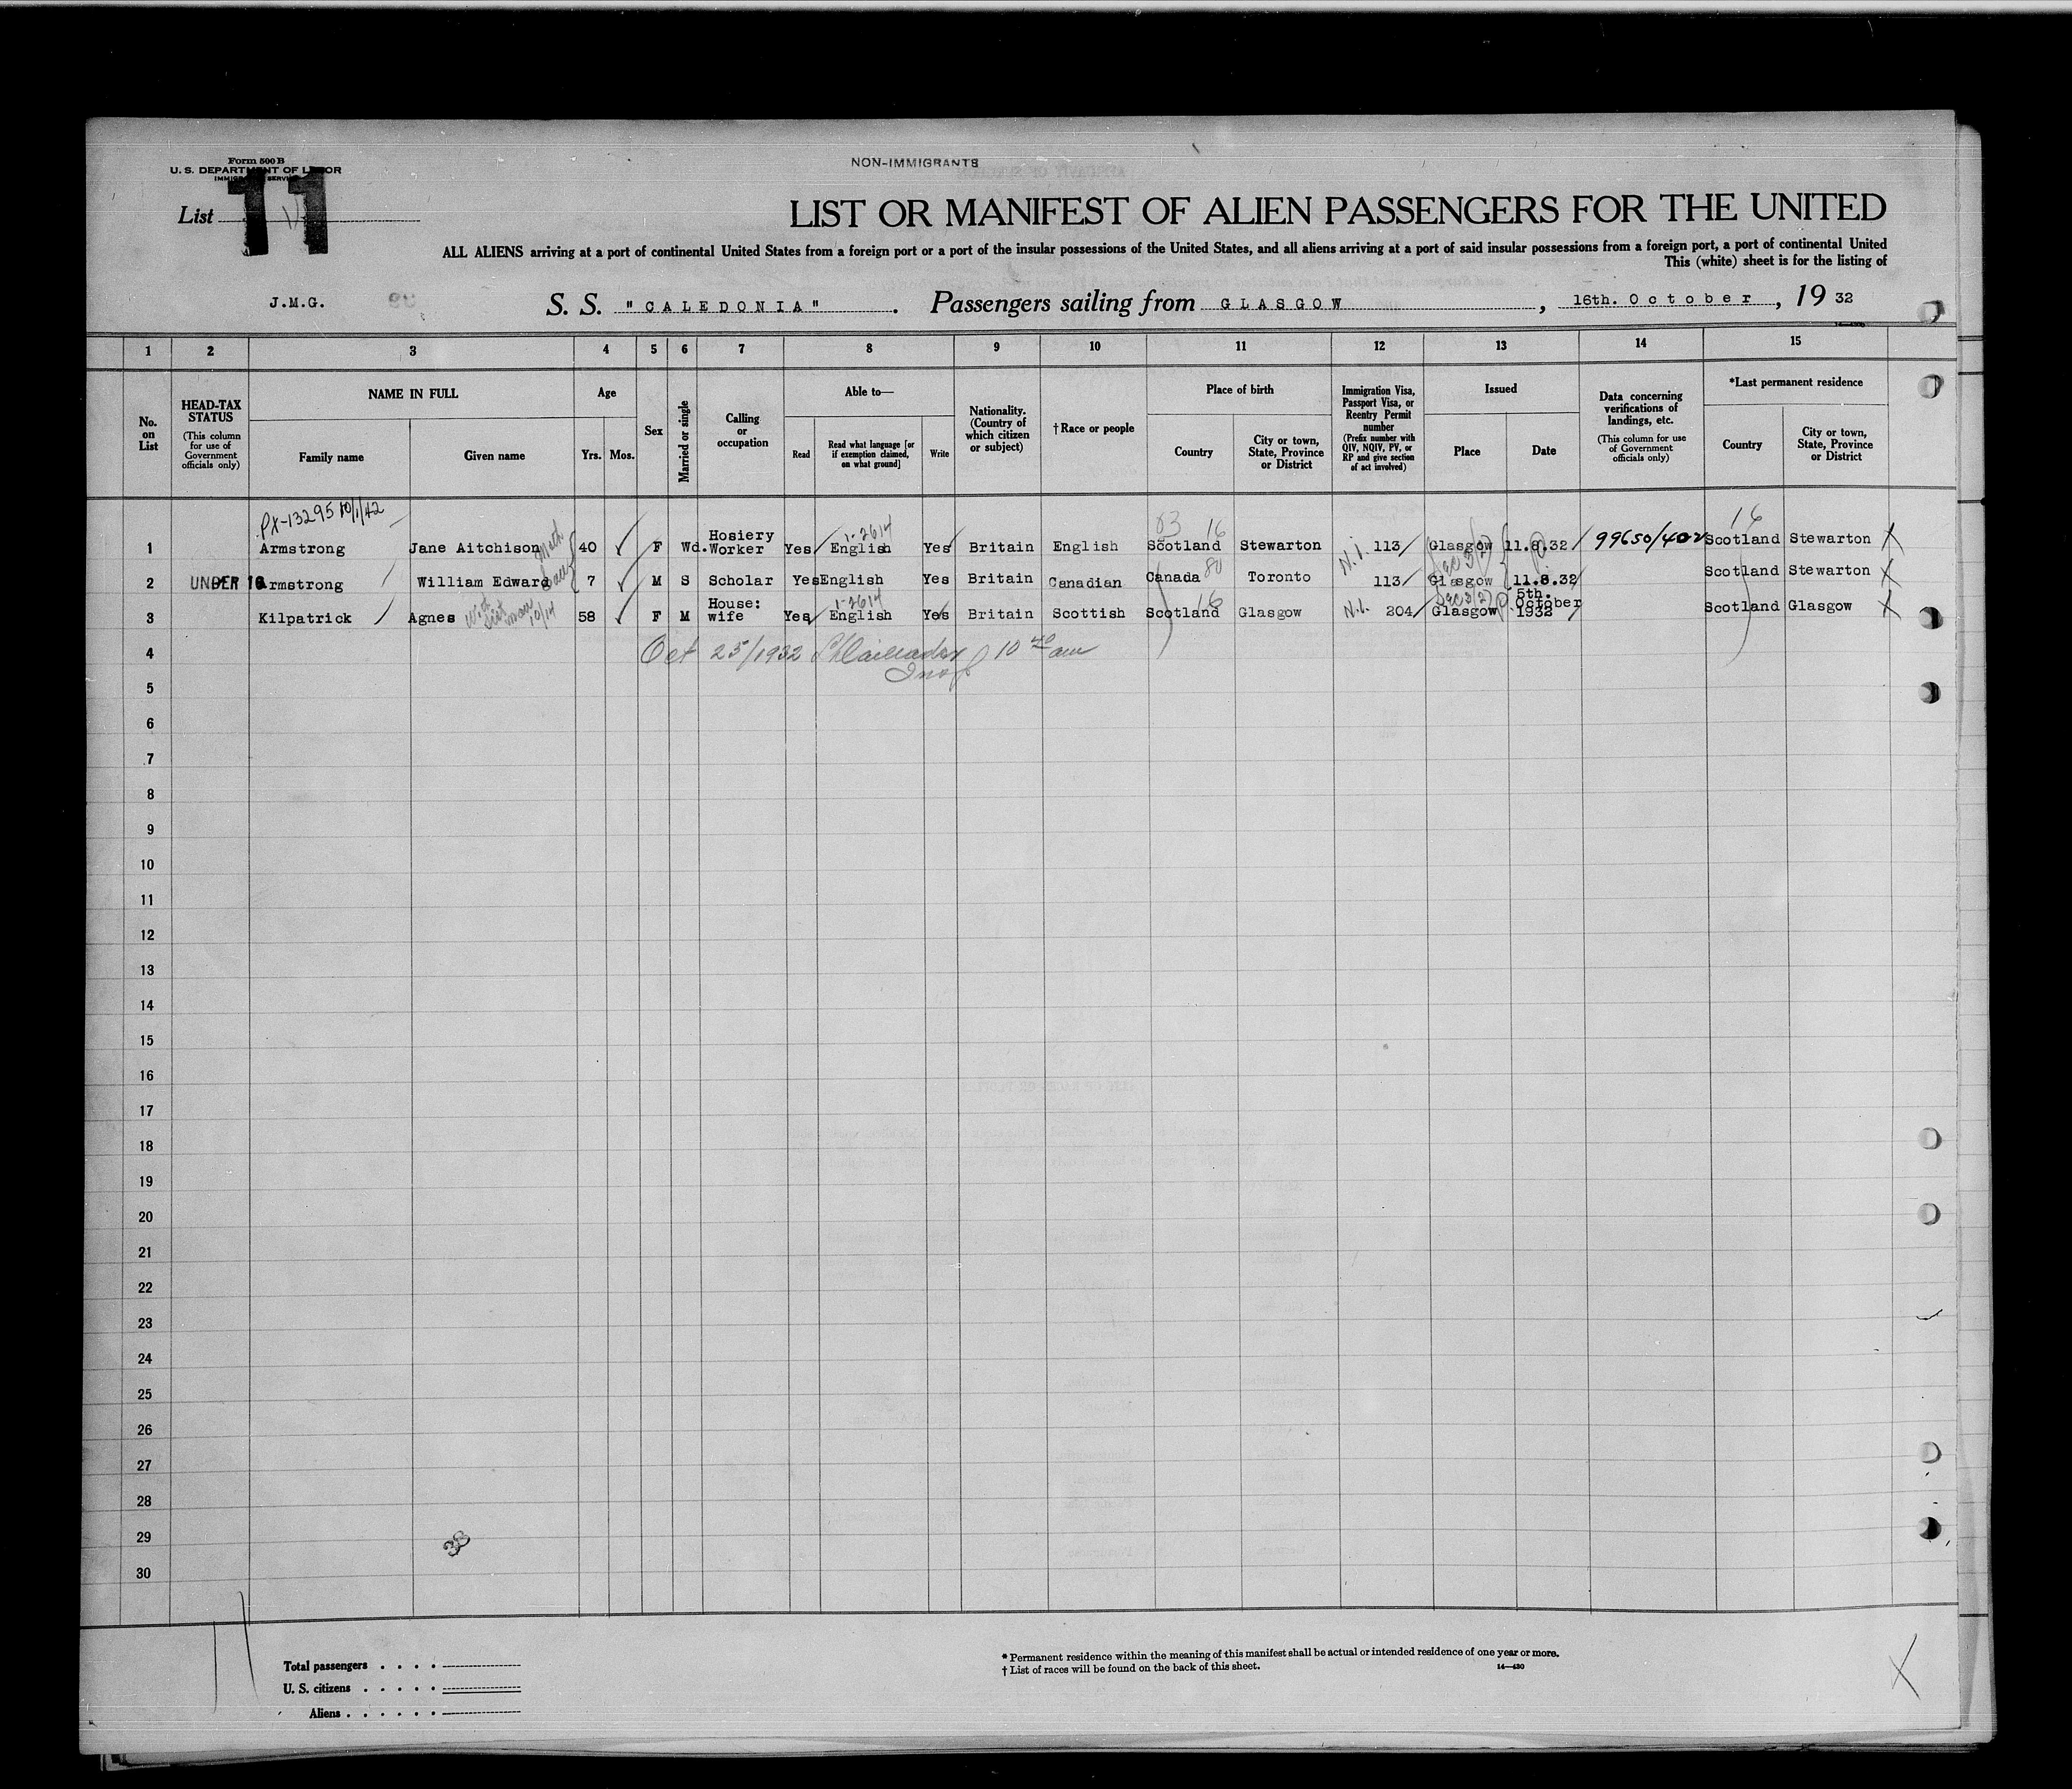 Form 500 B
U. S. DEPARTMENT OF LABOR
IMMIGRATION SERVICE
NON-IMMIGRANTS
List 11
LIST OR MANIFEST OF ALIEN PASSENGERS FOR THE UNITED
ALL ALIENS arriving at a port of continental United States from a foreign port or a port of the insular possessions of the United States, and all aliens arriving at a port of said insular possessions from a foreign port, a port of continental United
This (white) sheet is for the listing of
J.M.G. S. S. "CALEDONIA". Passengers sailing from GLASGOW, 16th. October, 19 32
1 2 3 4 5 6 7 8 9 10 11 12 13 14 15
No. on List
HEAD-TAX STATUS (This column for use of Government officials only)
NAME IN FULL
Family name Given name
Age
Yrs. Mos.
Sex
Married or single
Calling or occupation
Able to—
Read Read what language [or if exemption claimed, on what ground] Write
Nationality. (Country of which citizen or subject)
†Race or people
Place of birth
Country City or town, State, Province or District
Immigration Visa, Passport Visa, or Reentry Permit number (Prefix number with QIV, NQIV, PV, or RP and give section of act involved)
Issued
Place Date
Data concerning verifications of landings, etc. (This column for use of Government officials only)
*Last permanent residence
Country City or town, State, Province or District
PX-13295 10/1/42
1-2614
83 16
16
1 Armstrong Jane Aitchison 40 F Wd. Hosiery Worker Yes English Yes Britain English Scotland Stewarton N.I. 113 Glasgow 11.8.32 99650/402 Scotland Stewarton
Sec 3(2)
80
2 UNDER 16 Armstrong William Edward 7 M S Scholar Yes English Yes Britain Canadian Canada Toronto 113 Glasgow 11.8.32 Scotland Stewarton
1-2614
16
Sec 3(2)
3 Kilpatrick Agnes 58 F M House: wife Yes English Yes Britain Scottish Scotland Glasgow N.I. 204 Glasgow 5th. October 1932 Scotland Glasgow
10/14
4 Oct 25/1932 10 40 am
Insp
5
6
7
8
9
10
11
12
13
14
15
16
17
18
19
20
21
22
23
24
25
26
27
28
29
30
38
Total passengers . . . .
U. S. citizens . . . . .
Aliens . . . . . .
* Permanent residence within the meaning of this manifest shall be actual or intended residence of one year or more.
† List of races will be found on the back of this sheet.
14—430